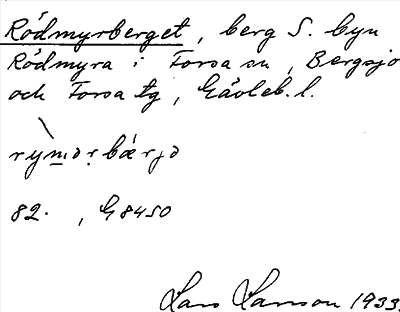 Rödmyrberget, berg S. byn
Rödmyra i Forsa sn, Bergsjö
och Forsa tg, Gävleb. l.
82. , G8450
Lars Larsson 1933.